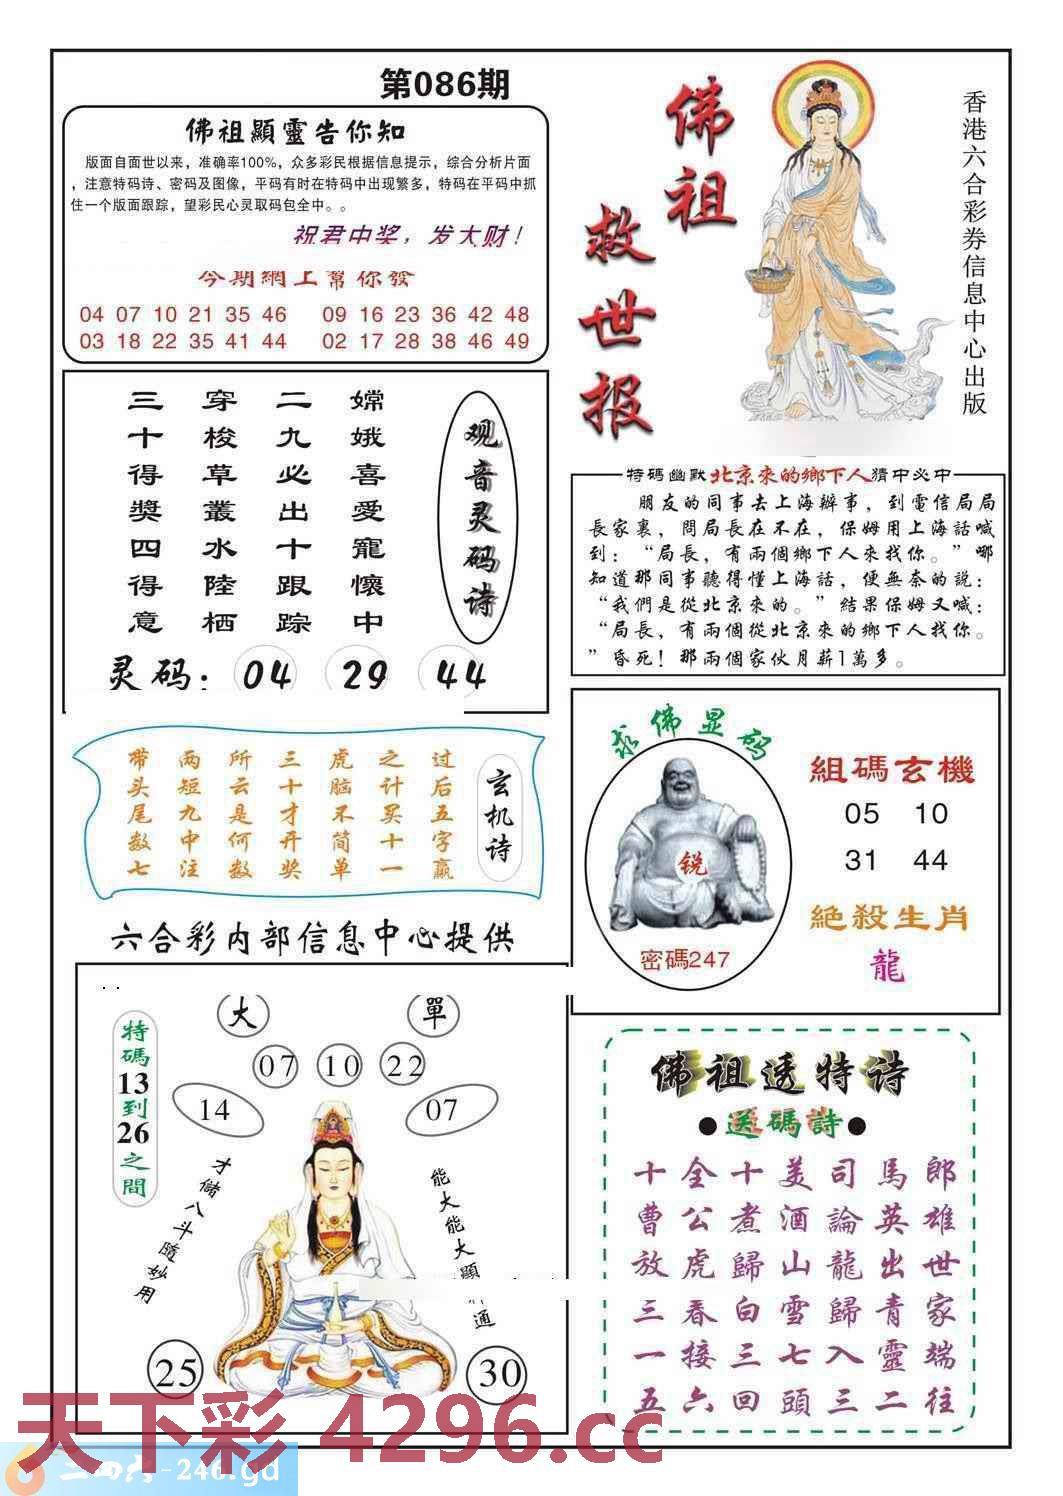 第086期
佛祖顯靈告你知
版面自面世以来，准确率100%，众多彩民根据信息提示，综合分析片面
，注意特码诗、密码及图像，平码有时在特码中出现繁多，特码在平码中抓
住一个版面跟踪，望彩民心灵取码包全中。。
祝君中奖，发大财！
今期網上幫你發
04 07 10 21 35 46 09 16 23 36 42 48
03 18 22 35 41 44 02 17 28 38 46 49
佛祖
救世报
香港六合彩券信息中心出版
观音灵码诗
嫦娥喜愛寵懷中
二九必出十跟踪
穿梭草叢水陸栖
三十得獎四得意
灵码：04 29 44
特碼幽默北京來的鄉下人猜中必中
朋友的同事去上海辦事，到電信局局
長家裏，問局長在不在，保姆用上海話喊
到：“局長，有兩個鄉下人來找你。”哪
知道那同事聽得懂上海話，便無奈的説：
“我們是從北京來的。”結果保姆又喊：
“局長，有兩個從北京來的鄉下人找你。
”昏死！那兩個家伙月薪1萬多。
玄机诗
过后五字赢
之计买十一
虎脑不简单
三十才开奖
所云是何数
两短九中注
带头尾数七
求佛显码
锐
密碼247
組碼玄機
05 10
31 44
絕殺生肖
龍
六合彩内部信息中心提供
大 單
07 10 22
14 07
特碼13到26之間
才儲八斗隨妙用
能大能大顯 通
25 30
佛祖透特诗
●送碼詩●
十全十美司馬郎
曹公煮酒論英雄
放虎歸山龍出世
三春白雪歸青家
一接三七入靈端
五六回頭三二往
天下彩 4296.cc
二四六-246.gd